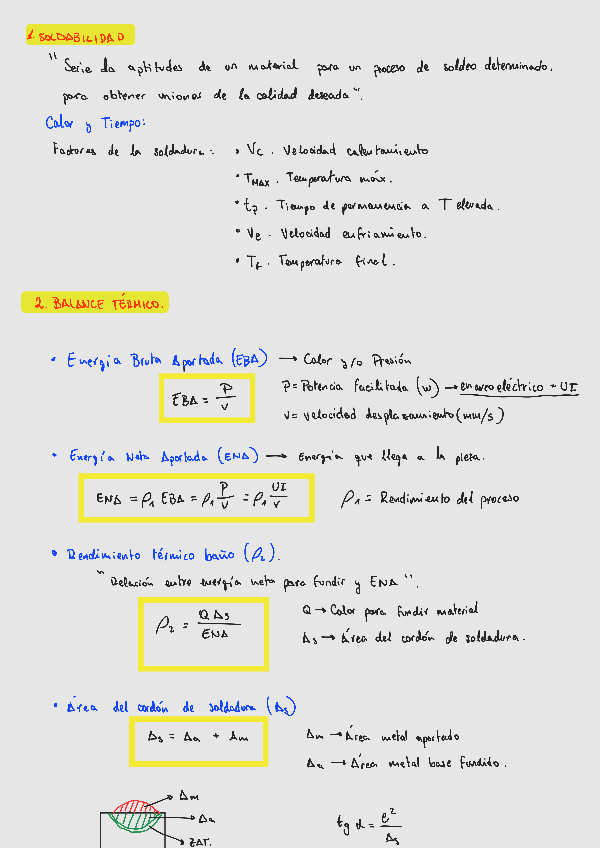 1. SOLDABILIDAD
"Serie de aptitudes de un material para un proceso de soldeo determinado,
para obtener uniones de la calidad deseada".
Calor y Tiempo:
Factores de la soldadura: • Vc. Velocidad calentamiento
• TMAX. Temperatura máx.
• tp. Tiempo de permanencia a T elevada.
• Ve. Velocidad enfriamiento.
• Tf. Temperatura final.
2. BALANCE TÉRMICO.
• Energía Bruta Aportada (EBA) → Calor y/o Presión
EBA = P/V
P = Potencia facilitada (W) → en arco eléctrico → UI
V = velocidad desplazamiento (mm/s)
• Energía Neta Aportada (ENA) → Energía que llega a la pieza.
ENA = ρ1 EBA = ρ1 P/V = ρ1 UI/V
ρ1 = Rendimiento del proceso
• Rendimiento térmico baño (ρ2).
"Relación entre energía neta para fundir y ENA".
ρ2 = Q As/ENA
Q → Calor para fundir material
As → Área del cordón de soldadura.
• Área del cordón de soldadura (As)
As = Aa + Am
Am → Área metal aportado
Aa → Área metal base fundido.
Am
Aa
ZAT.
tg α = e²/As